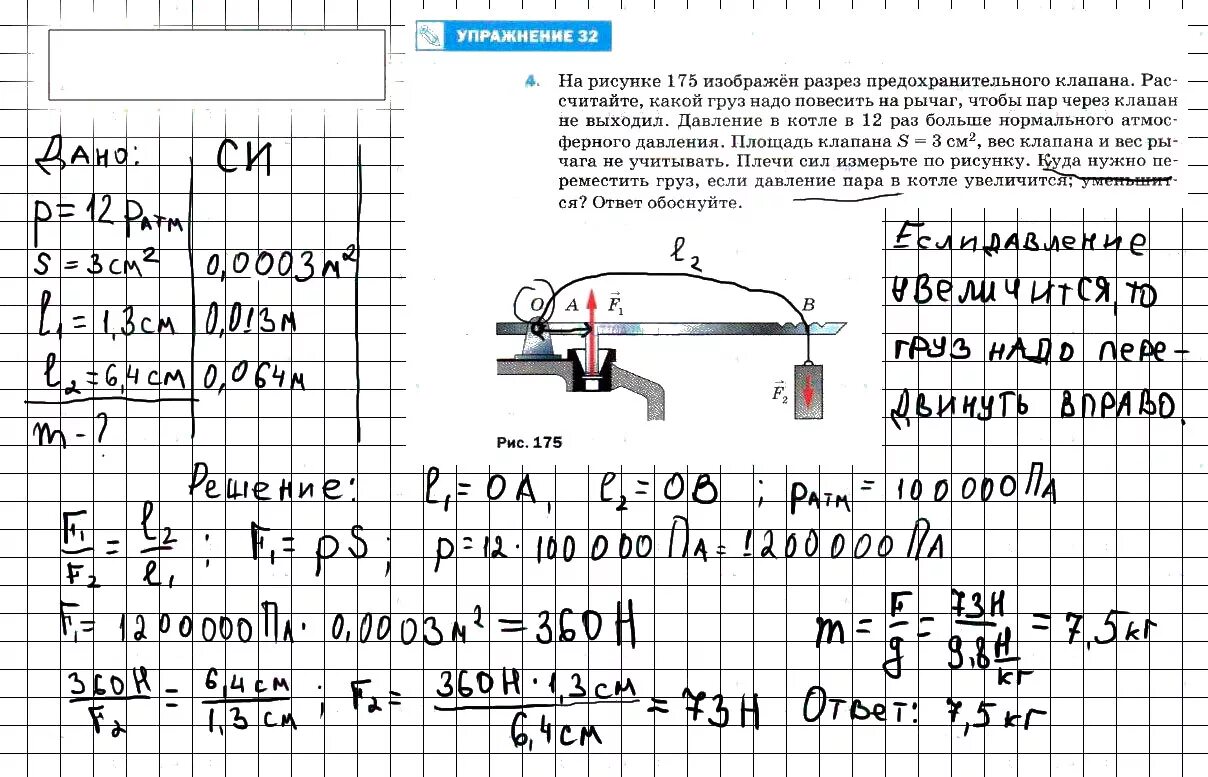 УПРАЖНЕНИЕ 32
4. На рисунке 175 изображён разрез предохранительного клапана. Рас-
считайте, какой груз надо повесить на рычаг, чтобы пар через клапан
не выходил. Давление в котле в 12 раз больше нормального атмос-
ферного давления. Площадь клапана S = 3 см², вес клапана и вес ры-
чага не учитывать. Плечи сил измерьте по рисунку. Куда нужно пе-
реместить груз, если давление пара в котле увеличится; уменьшит-
ся? Ответ обоснуйте.
Дано: СИ
p = 12 pатм
S = 3 см² 0,0003 м²
l₁ = 1,3 см 0,013 м
l₂ = 6,4 см 0,064 м
m - ?
l₂
O A F₁ B
F₂
Рис. 175
Если давление
увеличится, то
груз надо пере-
двинуть вправо.
Решение: l₁ = OA, l₂ = OB ; pатм = 100 000 Па
F₁/F₂ = l₂/l₁ ; F₁ = pS ; p = 12 · 100 000 Па = 1200 000 Па
F₁ = 1200000 Па · 0,0003 м² = 360 Н
m = F/g = 73Н/9,8 Н/кг = 7,5 кг
360Н/F₂ = 6,4 см/1,3 см ; F₂ = 360Н · 1,3 см/6,4 см = 73 Н
Ответ: 7,5 кг